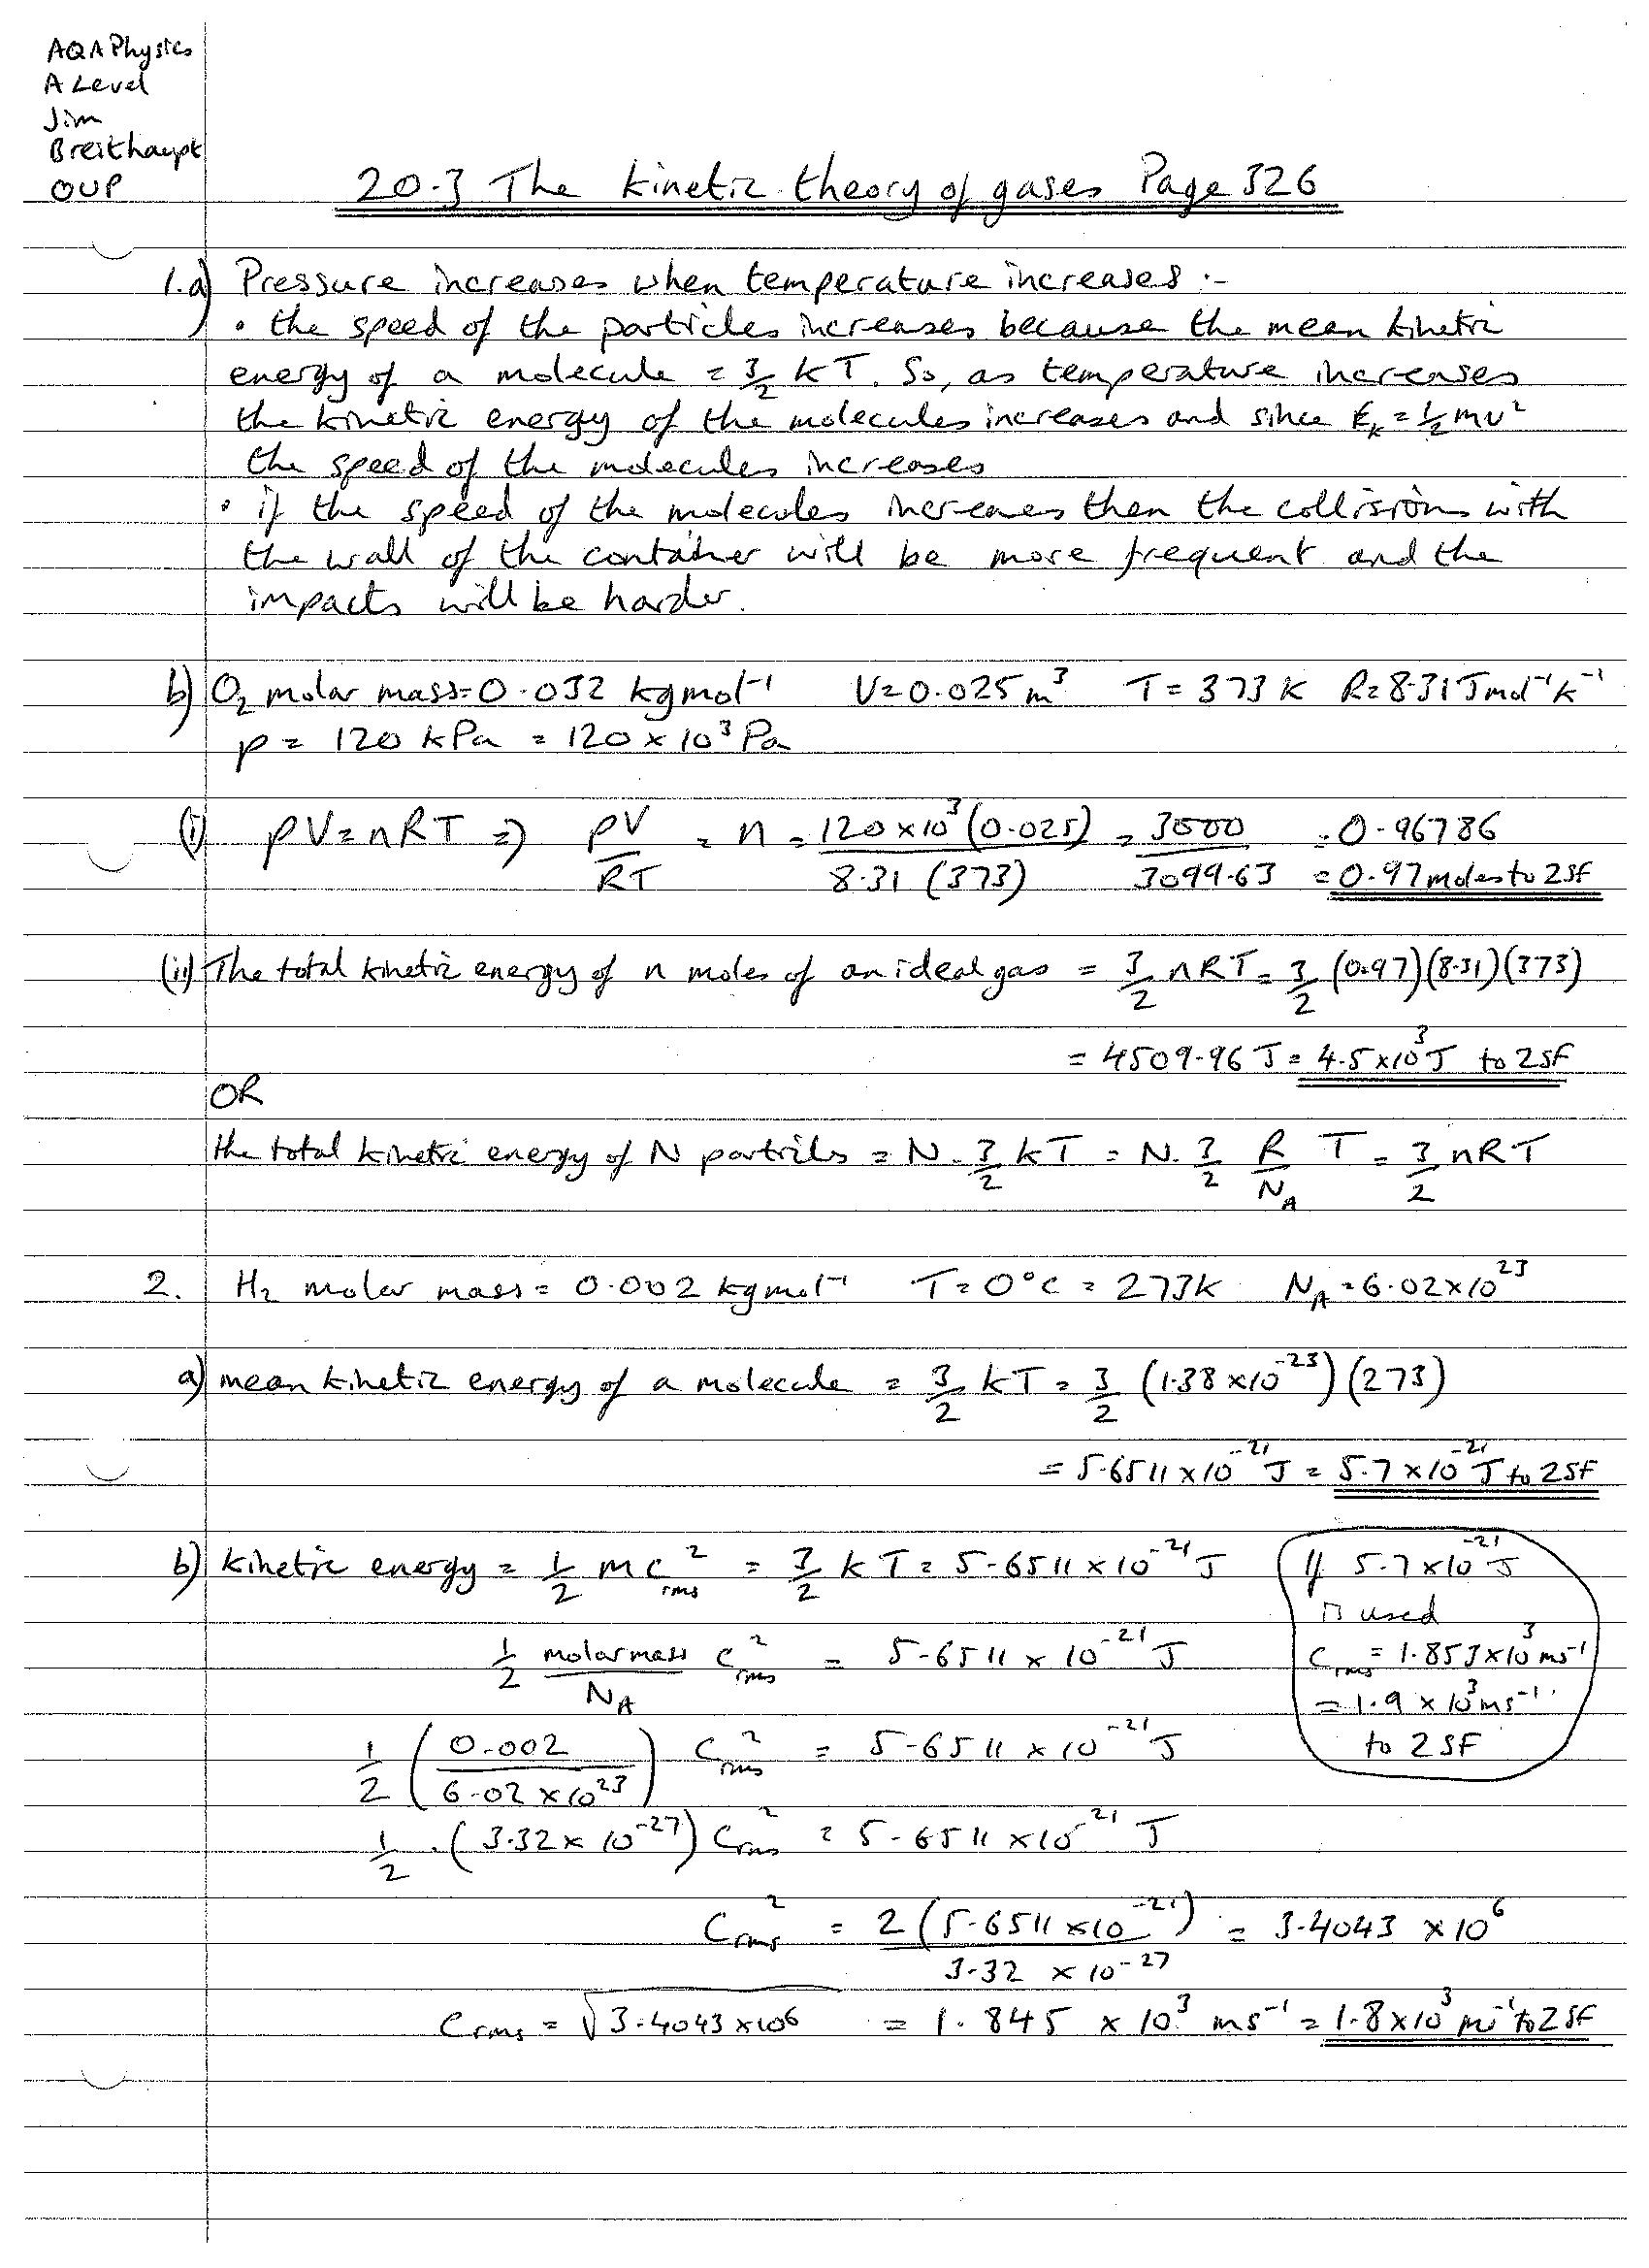 AQA Physics
A Level
Jim
Breithaupt
OUP
20.3 The kinetic theory of gases Page 326
1.a) Pressure increases when temperature increases :-
• the speed of the particles increases because the mean kinetic
energy of a molecule = 3/2 kT. So, as temperature increases
the kinetic energy of the molecules increases and since Eₖ = ½mv²
the speed of the molecules increases
• if the speed of the molecules increases then the collisions with
the wall of the container will be more frequent and the
impacts will be harder.
b) O₂ molar mass = 0.032 kg mol⁻¹ V = 0.025 m³ T = 373 K R = 8.31 J mol⁻¹ K⁻¹
p = 120 kPa = 120 × 10³ Pa
(i) pV = nRT ⇒ pV/RT = n = 120 × 10³ (0.025) / 8.31 (373) = 3000 / 3099.63 = 0.96786
= 0.97 moles to 2SF
(ii) The total kinetic energy of n moles of an ideal gas = 3/2 nRT = 3/2 (0.97)(8.31)(373)
= 4509.96 J = 4.5 × 10³ J to 2SF
OR
the total kinetic energy of N particles = N. 3/2 kT = N. 3/2 R/N_A T = 3/2 nRT
2. H₂ molar mass = 0.002 kg mol⁻¹ T = 0°C = 273K N_A = 6.02 × 10²³
a) mean kinetic energy of a molecule = 3/2 kT = 3/2 (1.38 × 10⁻²³)(273)
= 5.6511 × 10⁻²¹ J = 5.7 × 10⁻²¹ J to 2SF
b) kinetic energy = 1/2 m c²rms = 3/2 kT = 5.6511 × 10⁻²¹ J
1/2 molar mass/N_A c²rms = 5.6511 × 10⁻²¹ J
1/2 (0.002 / 6.02 × 10²³) c²rms = 5.6511 × 10⁻²¹ J
1/2 . (3.32 × 10⁻²⁷) c²rms = 5.6511 × 10⁻²¹ J
c²rms = 2 (5.6511 × 10⁻²¹) / 3.32 × 10⁻²⁷ = 3.4043 × 10⁶
crms = √3.4043 × 10⁶ = 1.845 × 10³ ms⁻¹ = 1.8 × 10³ ms⁻¹ to 2SF
If 5.7 × 10⁻²¹ J
is used
crms = 1.853 × 10³ ms⁻¹
= 1.9 × 10³ ms⁻¹
to 2SF